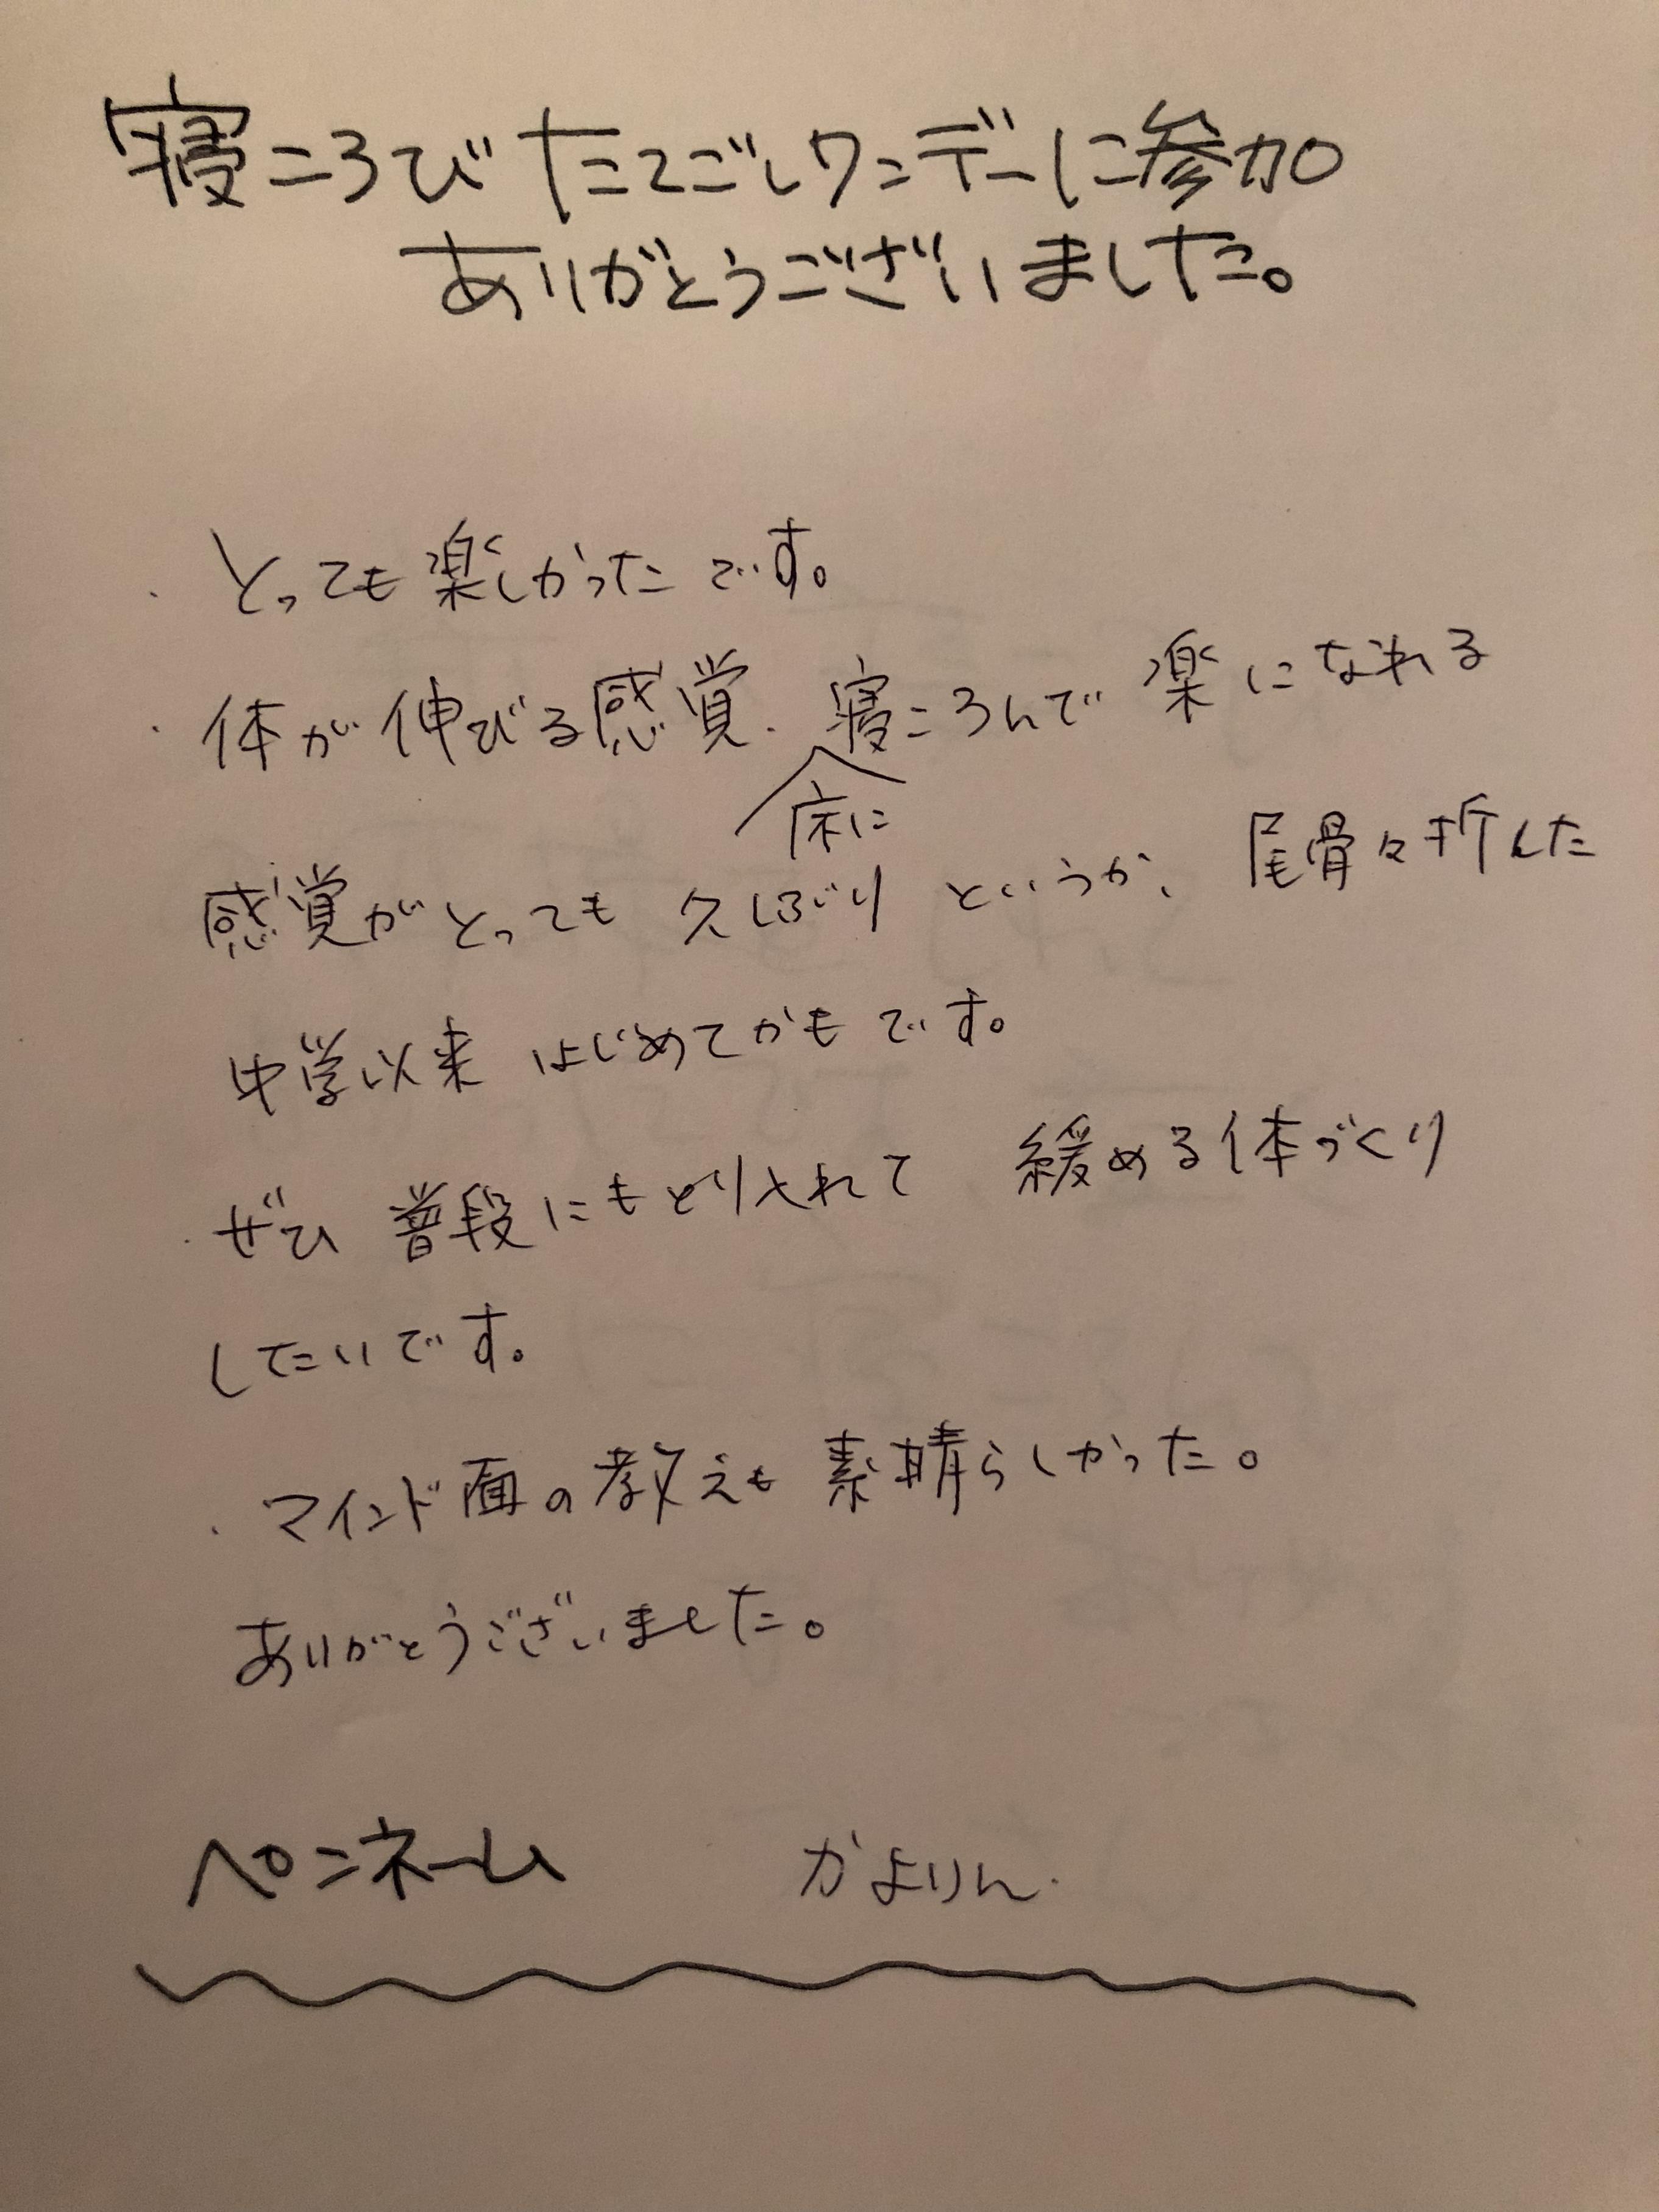 寝ころびたてごしワンデーに参加
ありがとうございました。
・とっても楽しかったです。
・体が伸びる感覚、床に寝ころんで楽になれる
感覚がとっても久しぶりというか、尾骨を折った
中学以来はじめてかもです。
・ぜひ普段にもとり入れて 緩める体づくり
したいです。
・マインド面の教えも素晴らしかった。
ありがとうございました。
ペンネーム かよりん